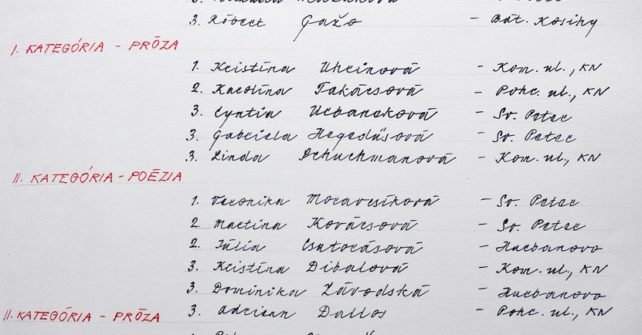 3. Róbert Gažo - Bát. Kosihy
I. KATEGÓRIA - PRÓZA
1. Kristína Uhrinová - Kom. ul., KN
2. Karolína Takácsová - Pohr. ul., KN
3. Cyntia Urbaneková - Sv. Peter
3. Gabriela Hegedűsová - Sv. Peter
3. Linda Schuchmanová - Kom. ul., KN
II. KATEGÓRIA - POÉZIA
1. Veronika Moravcsíková - Sv. Peter
2. Martina Kovácsová - Sv. Peter
2. Júlia Csutorásová - Hurbanovo
3. Kristína Dibalová - Kom. ul., KN
3. Dominika Závodská - Hurbanovo
3. Adrian Dallos - Pohr. ul., KN
II. KATEGÓRIA - PRÓZA